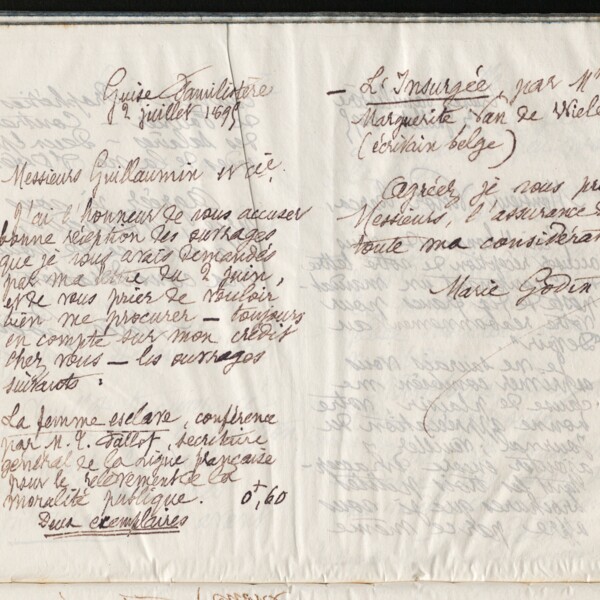 Guise Familistère
2 juillet 1895
Messieurs Guillaumin et Cie.
J'ai l'honneur de vous accuser
bonne réception des ouvrages
que je vous avais demandés
par ma lettre du 2 juin,
et de vous prier de vouloir
bien me procurer — toujours
en compte sur mon crédit
chez vous — les ouvrages
suivants :
La femme esclave, conférence
par M. T. Fallot, secrétaire
général de la Ligue française
pour le relèvement de la
moralité publique. 0f,60
Deux exemplaires
— L'Insurgée, par Me
Marguerite Van de Wiele
(écrivain belge)
Agréez je vous pri
Messieurs, l'assurance
toute ma considérat
Marie Godin